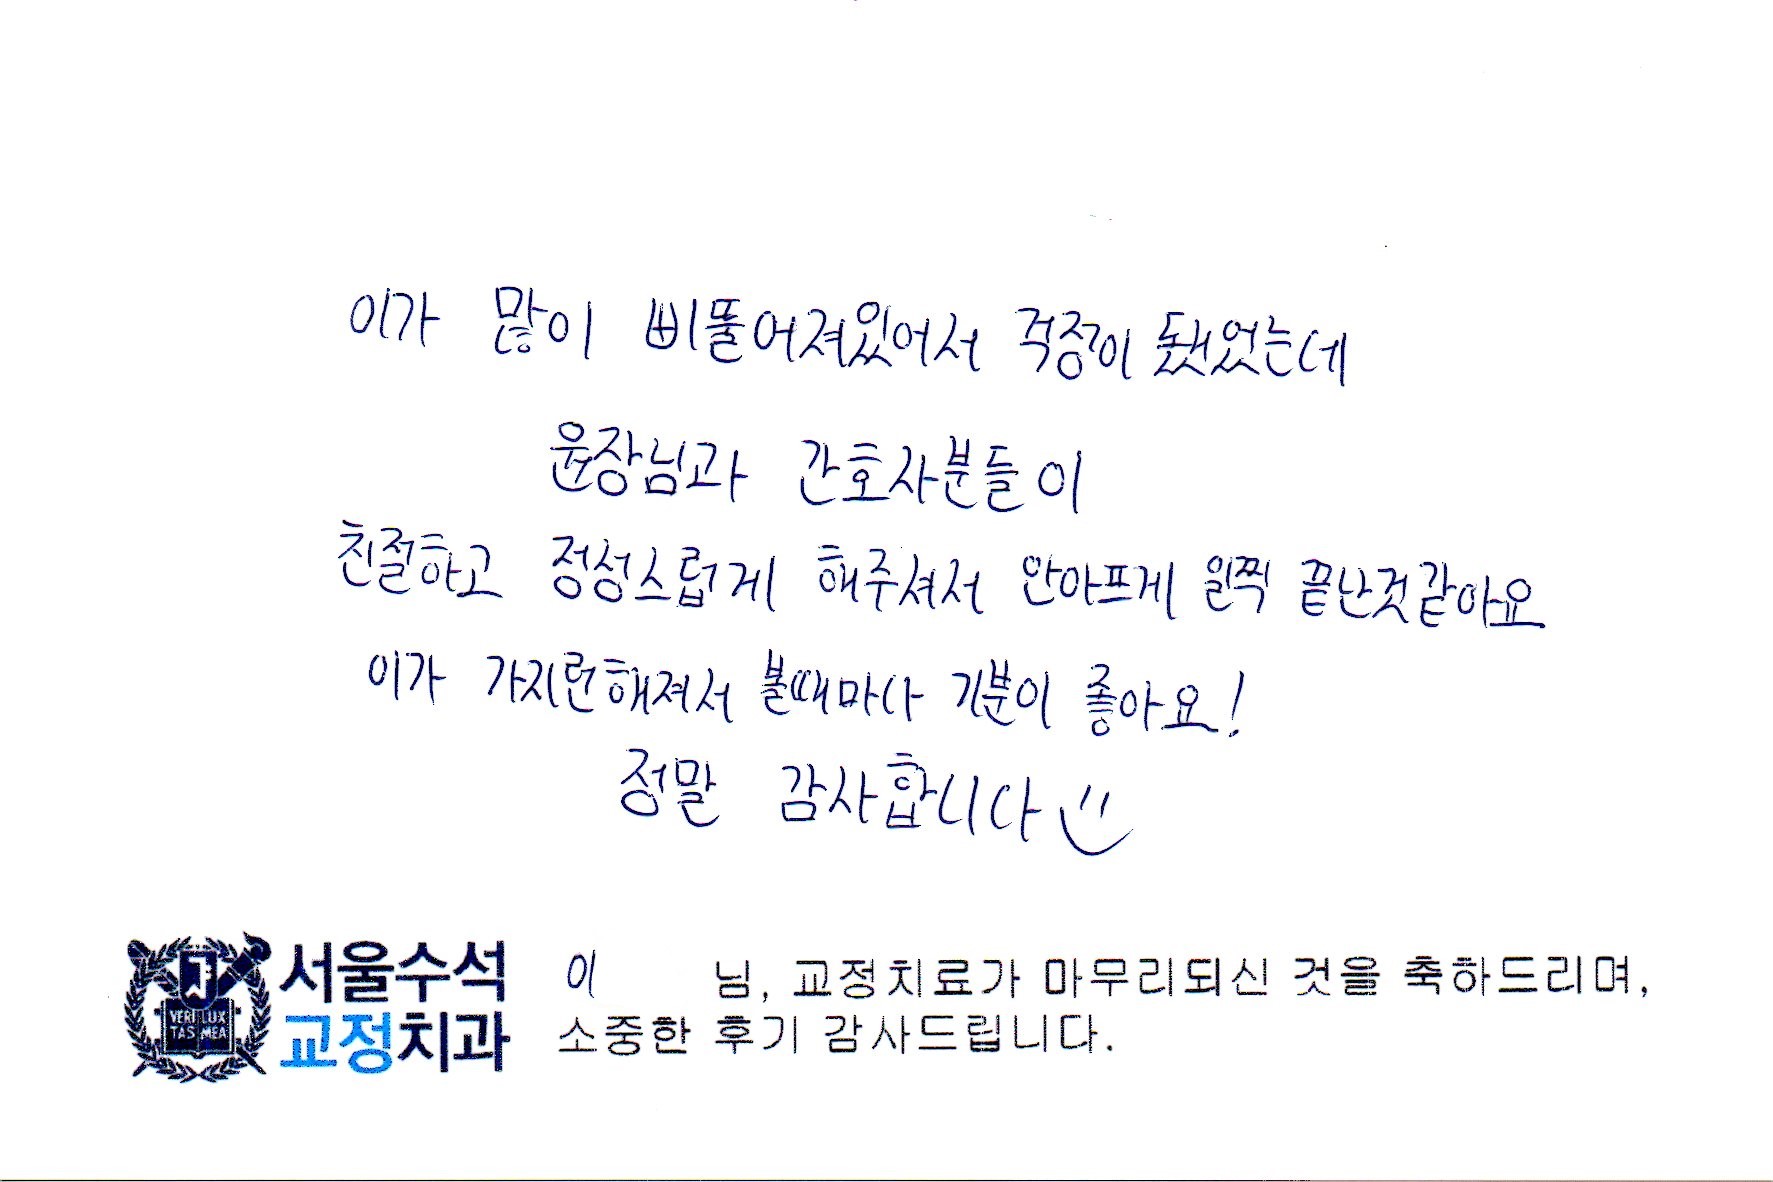 이가 많이 삐뚤어져있어서 걱정이 됐었는데
윤장님과 간호사분들이
친절하고 정성스럽게 해주셔서 안아프게 일찍 끝난것같아요
이가 가지런해져서 볼때마다 기분이 좋아요!
정말 감사합니다
서울수석
교정치과
VERI LUX
TAS MEA
이 님, 교정치료가 마무리되신 것을 축하드리며,
소중한 후기 감사드립니다.